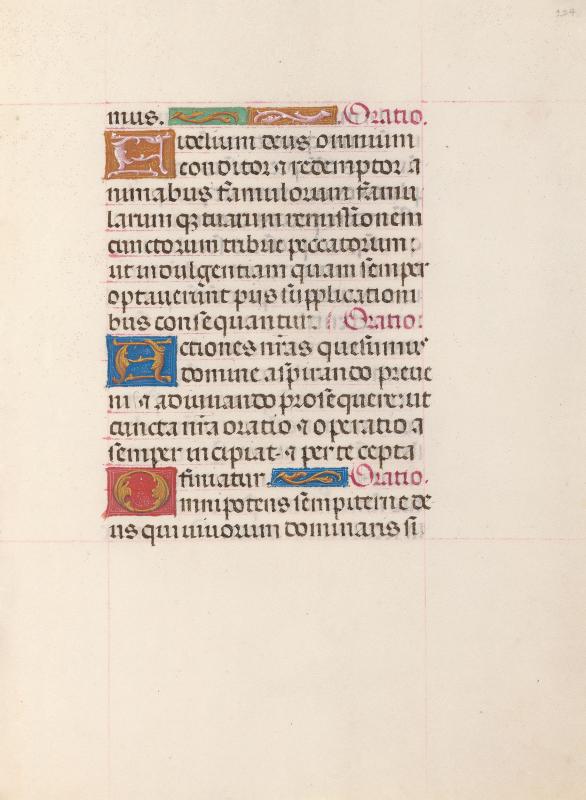 124
mus. Oratio.
Fidelium deus omnium
conditor ⁊ redemptor a
nimabus famulorum famu
larum qꝫ tuarum remissionem
cunctorum tribue peccatorum:
ut indulgentiam quam semper
optauerunt piis supplicationi
bus consequantur. Oratio:
Actiones nr̃as quesumus
domine aspirando preue
ni ⁊ adiuuando prosequere: ut
cuncta nr̃a oratio ⁊ operatio a
semper incipiat ⁊ per te cepta
finiatur. Oratio.
Omnipotens sempiterne de
us qui uiuorum dominaris si